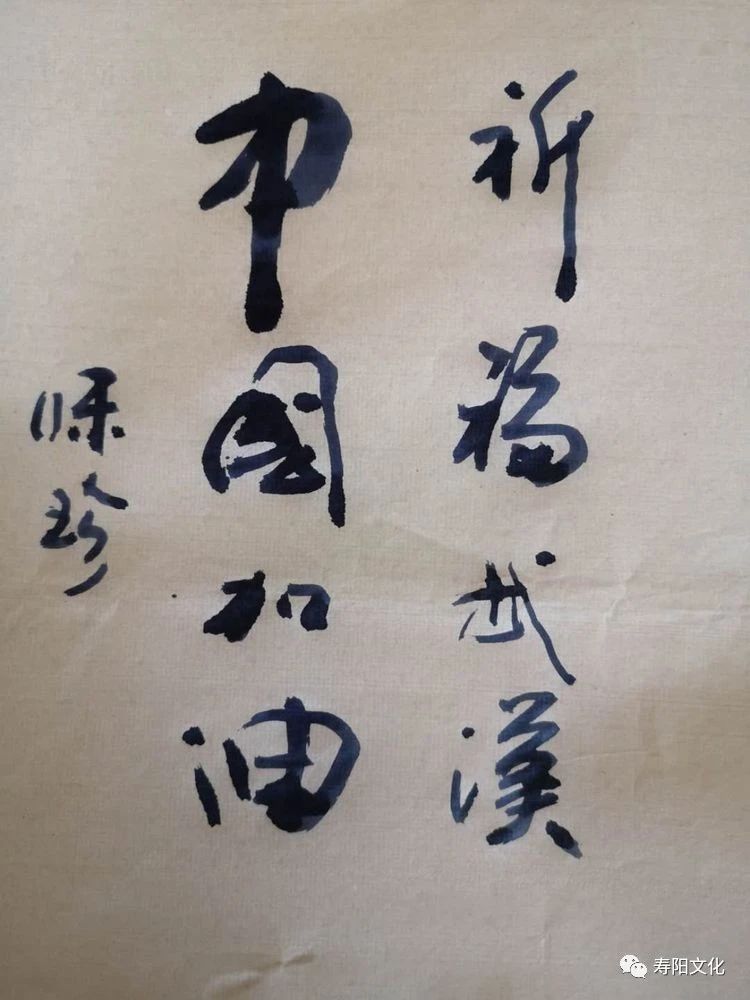 祈福武漢
中國加油
保珍
寿阳文化